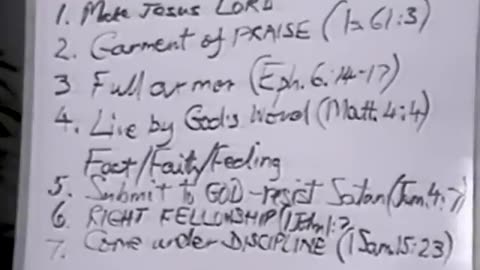 1. Make Jesus LORD
2. Garment of PRAISE (Is 61:3)
3 Full armor (Eph. 6:14-17)
4. Live by God's Word (Matt. 4:4)
Fact/Faith/Feeling
5. Submit to GOD-resist Satan (Jam. 4:7)
6. RIGHT FELLOWSHIP (1 John 1:7
7. Come under DISCIPLINE (1 Sam. 15:23)